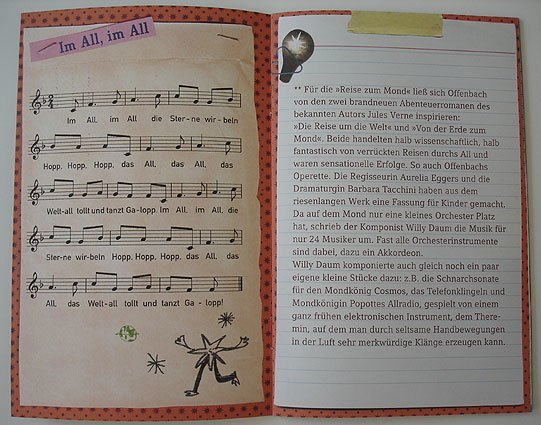 Im All, im All
Im All, im All die Ster-ne wir-beln
Hopp, Hopp, Hopp, das All, das All, das
Welt-all tollt und tanzt Ga-lopp. Im All, im All, die
Ster-ne wir-beln Hopp, Hopp, Hopp, das All, das
All, das Welt-all tollt und tanzt Ga - lopp!
** Für die »Reise zum Mond« ließ sich Offenbach
von den zwei brandneuen Abenteuerromanen des
bekannten Autors Jules Verne inspirieren:
»Die Reise um die Welt« und »Von der Erde zum
Mond«. Beide handelten halb wissenschaftlich, halb
fantastisch von verrückten Reisen durchs All und
waren sensationelle Erfolge. So auch Offenbachs
Operette. Die Regisseurin Aurelia Eggers und die
Dramaturgin Barbara Tacchini haben aus dem
riesenlangen Werk eine Fassung für Kinder gemacht.
Da auf dem Mond nur eine kleines Orchester Platz
hat, schrieb der Komponist Willy Daum die Musik für
nur 24 Musiker um. Fast alle Orchesterinstrumente
sind dabei, dazu ein Akkordeon.
Willy Daum komponierte auch gleich noch ein paar
eigene kleine Stücke dazu: z.B. die Schnarchsonate
für den Mondkönig Cosmos, das Telefonklingeln und
Mondkönigin Popottes Allradio, gespielt von einem
ganz frühen elektronischen Instrument, dem There-
min, auf dem man durch seltsame Handbewegungen
in der Luft sehr merkwürdige Klänge erzeugen kann.